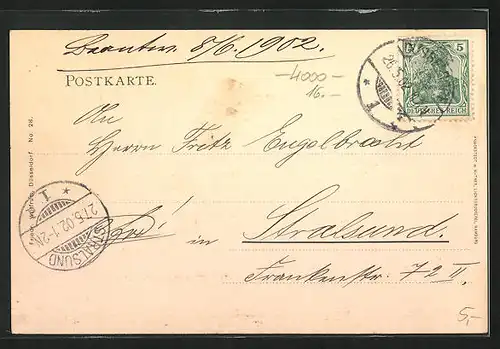 Beantw. 8/6. 1902.
5
DEUTSCHES REICH
POSTKARTE.
-4000-
16.-
An
Herrn Fritz Engelbrecht
in Stralsund.
Frankenstr. 72 II.
STRALSUND
27.5.02.1-2
1
Düsseldorf. No. 26.
5,-